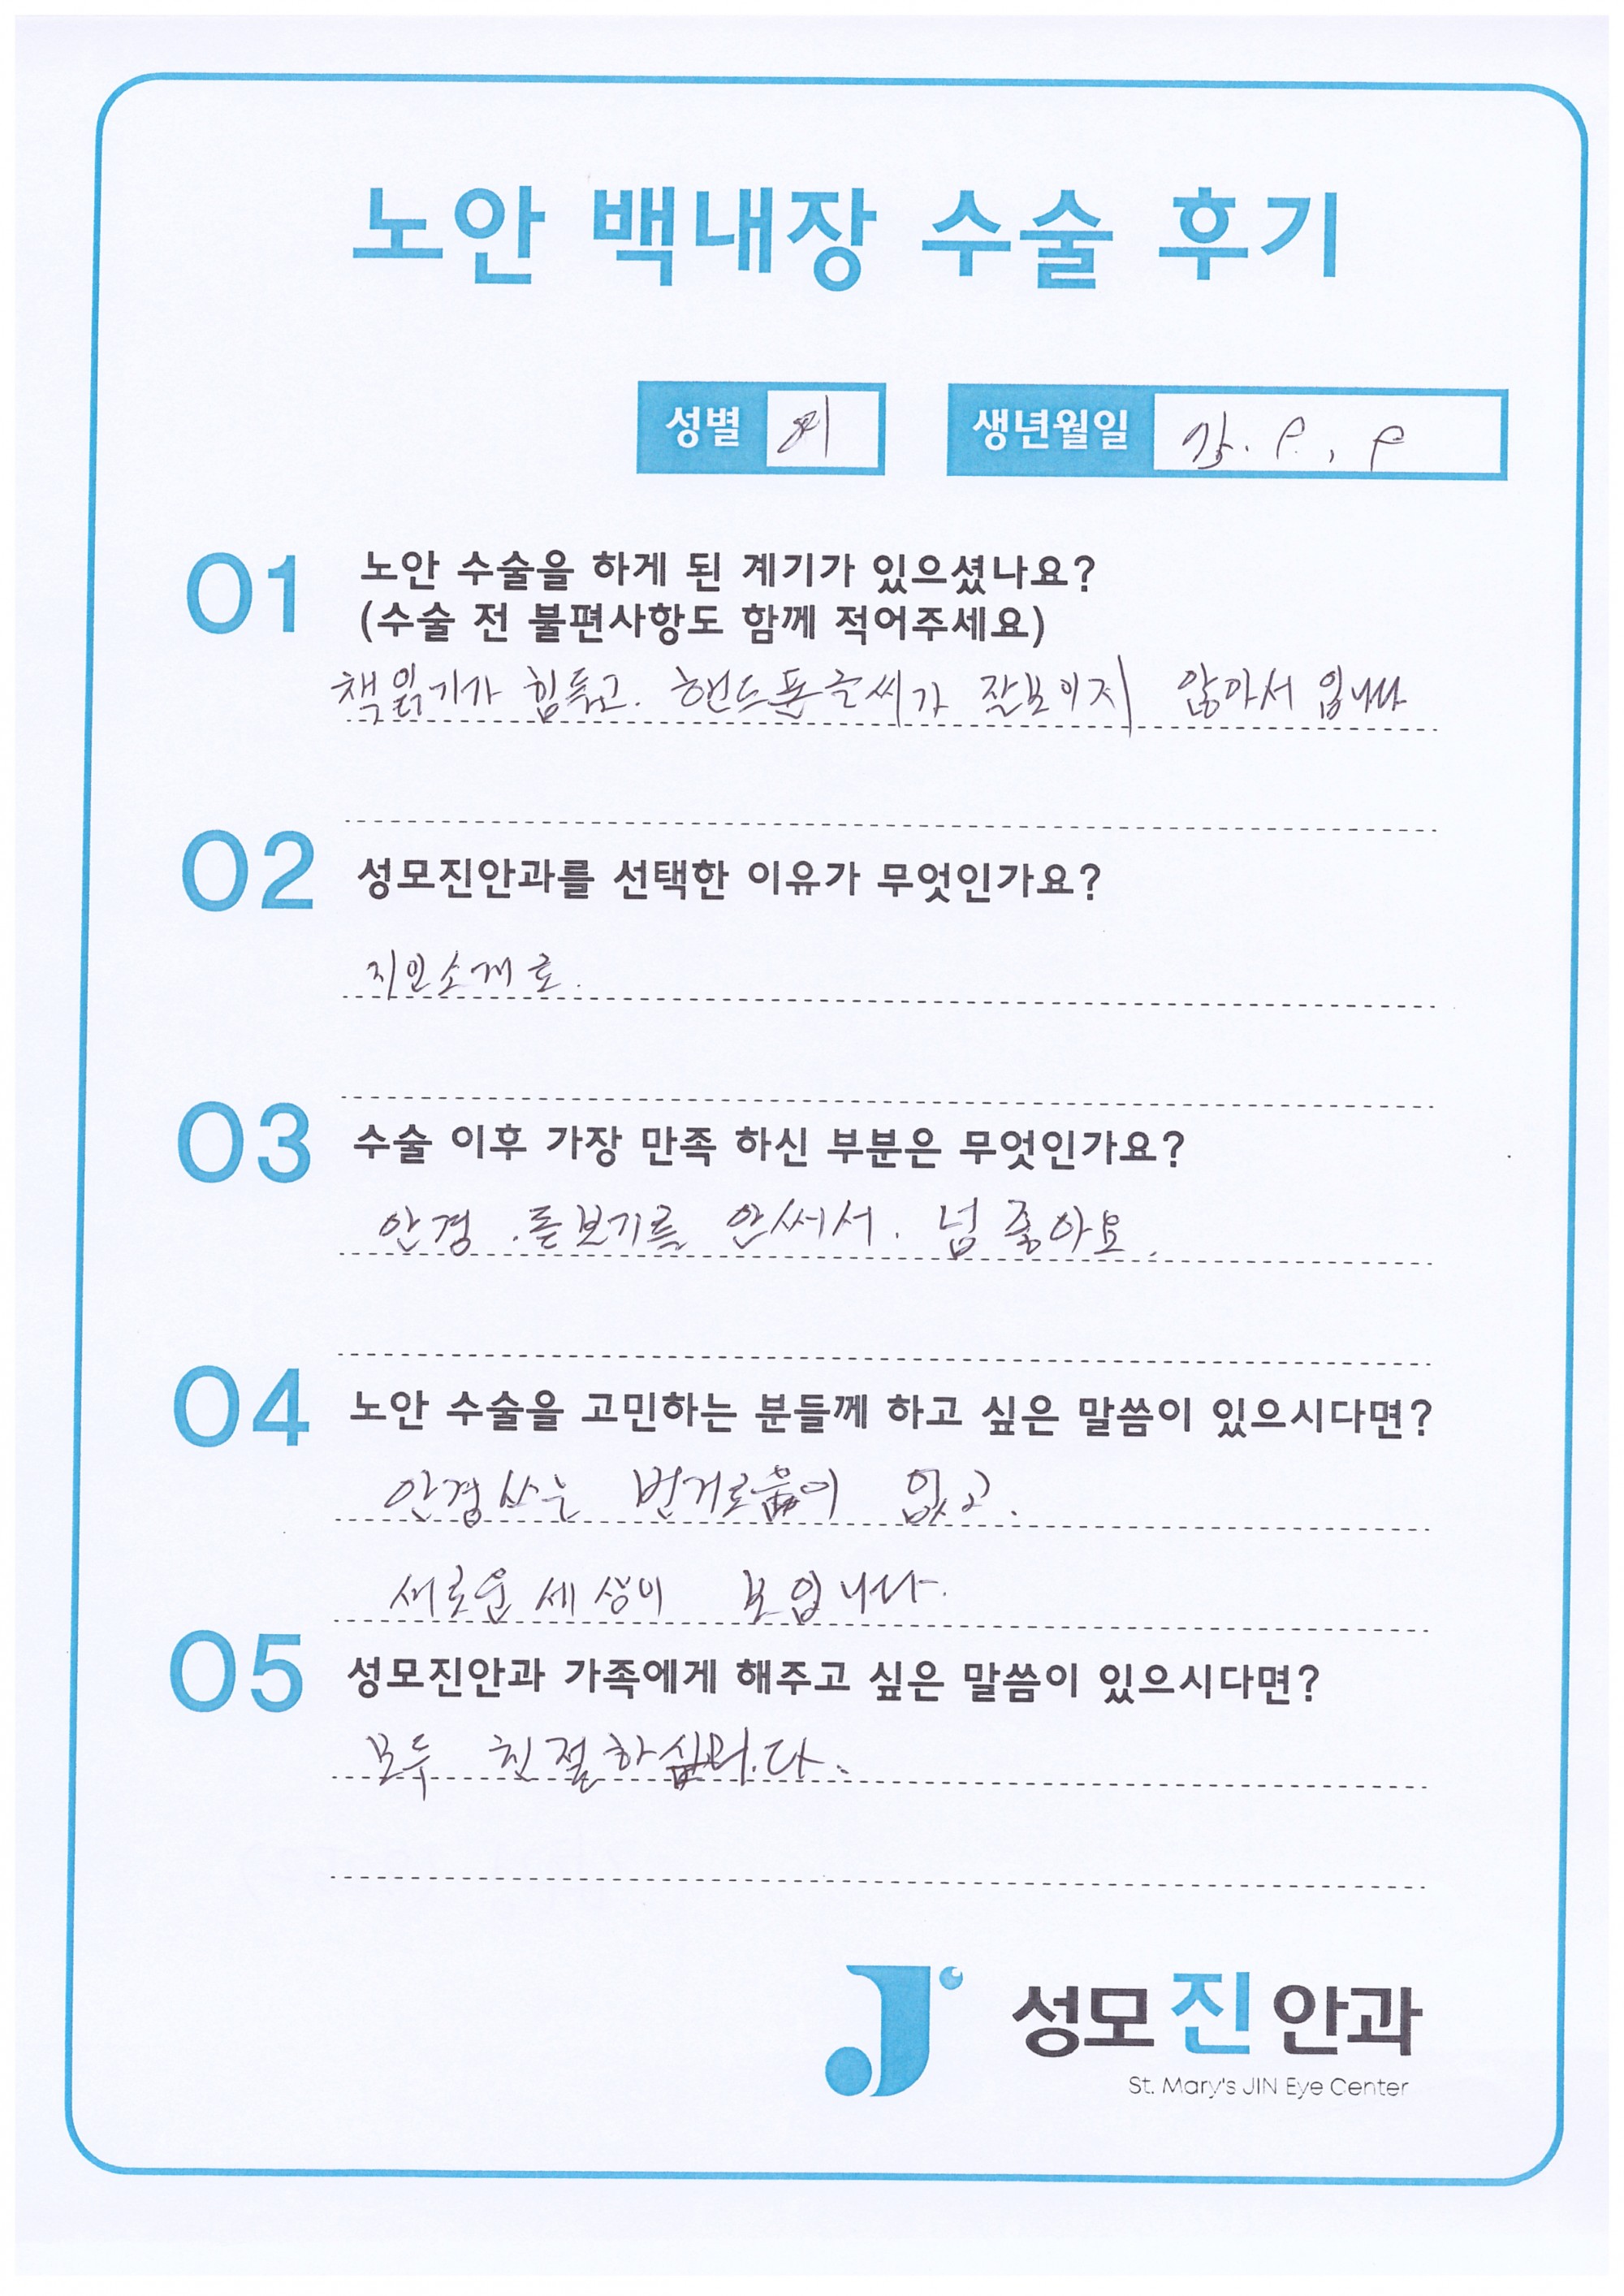 노안 백내장 수술 후기
성별 생년월일
01 노안 수술을 하게 된 계기가 있으셨나요?
(수술 전 불편사항도 함께 적어주세요)
책읽기가 힘들고. 핸드폰글씨가 잘보이지 않아서 입니다
02 성모진안과를 선택한 이유가 무엇인가요?
지인소개로.
03 수술 이후 가장 만족 하신 부분은 무엇인가요?
안경. 돋보기를 안써서. 넘 좋아요.
04 노안 수술을 고민하는 분들께 하고 싶은 말씀이 있으시다면?
안경쓰는 번거로움이 없고.
새로운세상이 보입니다.
05 성모진안과 가족에게 해주고 싶은 말씀이 있으시다면?
모두 친절하십니다.
성모진안과
St. Mary's JIN Eye Center